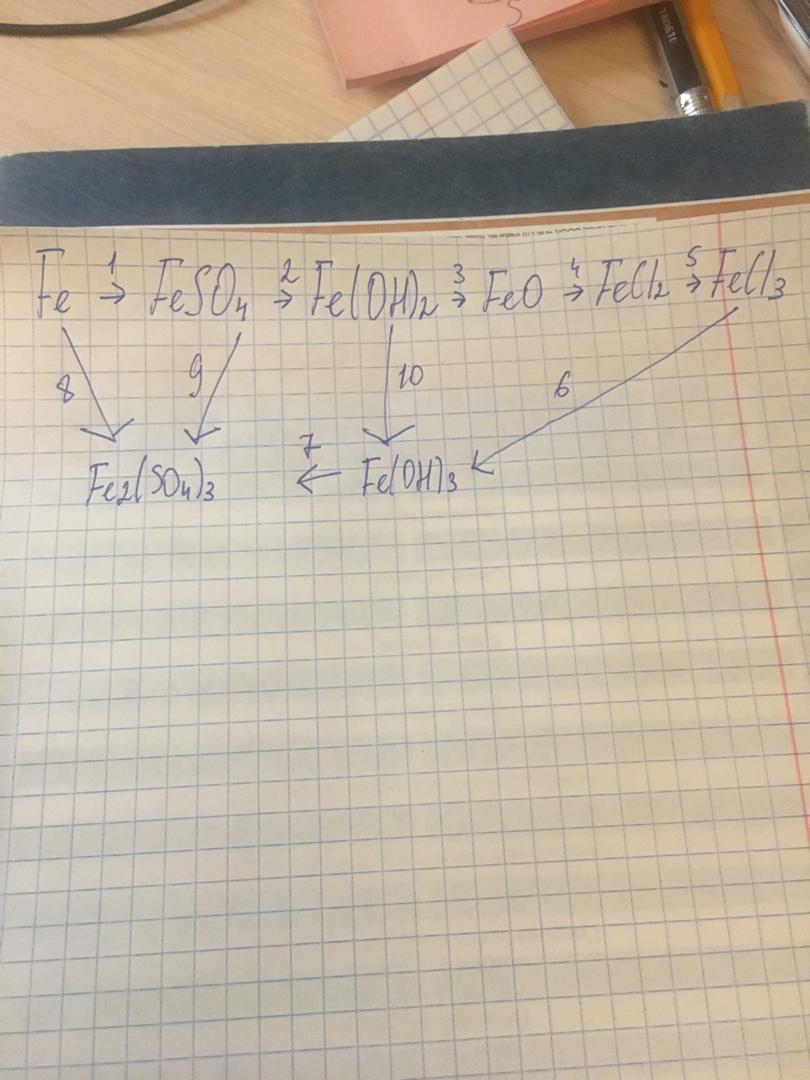 Fe 1→ FeSO4 2→ Fe(OH)2 3→ FeO 4→ FeCl2 5→ FeCl3
8 9 10 6
Fe2(SO4)3 7← Fe(OH)3